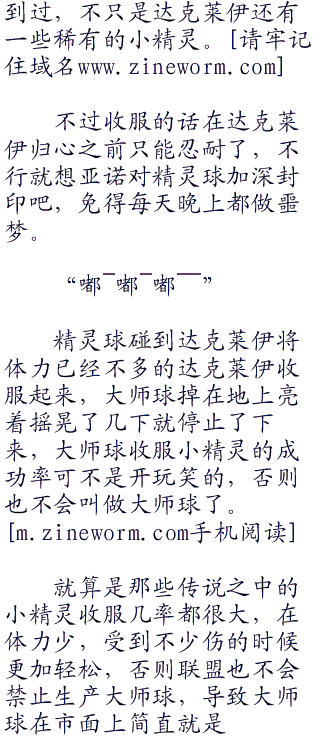 到过，不只是达克莱伊还有
一些稀有的小精灵。[请牢记
住域名www.zineworm.com]
不过收服的话在达克莱
伊归心之前只能忍耐了，不
行就想亚诺对精灵球加深封
印吧，免得每天晚上都做噩
梦。
“嘟¯嘟¯嘟¯¯”
精灵球碰到达克莱伊将
体力已经不多的达克莱伊收
服起来，大师球掉在地上亮
着摇晃了几下就停止了下
来，大师球收服小精灵的成
功率可不是开玩笑的，否则
也不会叫做大师球了。
[m.zineworm.com手机阅读]
就算是那些传说之中的
小精灵收服几率都很大，在
体力少，受到不少伤的时候
更加轻松，否则联盟也不会
禁止生产大师球，导致大师
球在市面上简直就是